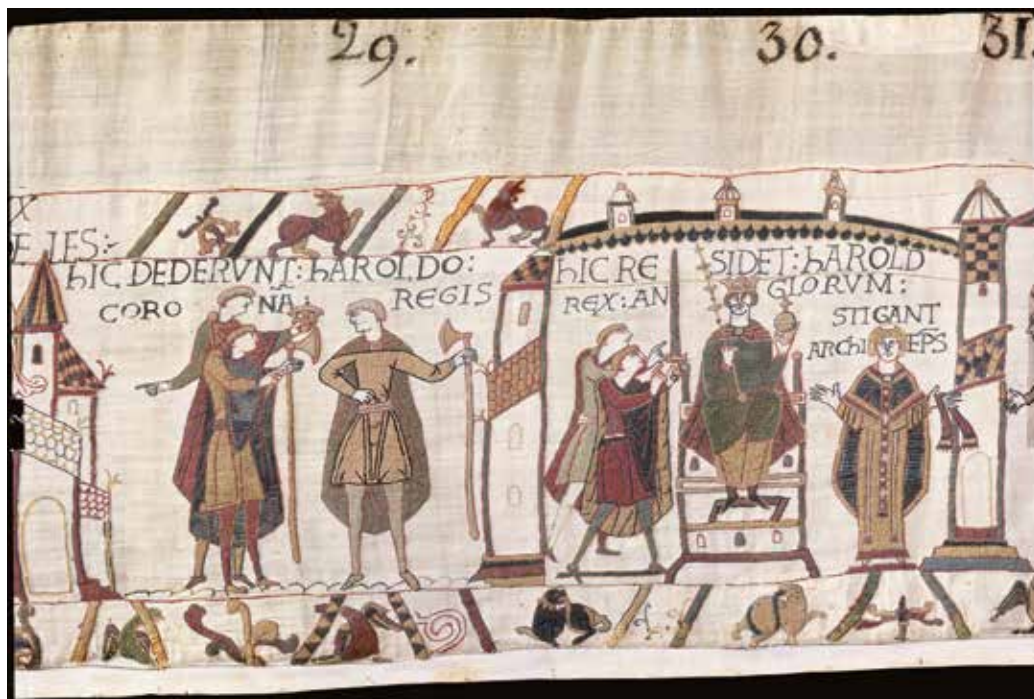 29.
30.
31.
X
ELES:-
hIC DEDERVNT: hAROLDO:
CORO NĀ: REGIS
hIC RE SIDET: hAROLD
REX: AN GLORVM:
STIGANT
ARChI EP̄S